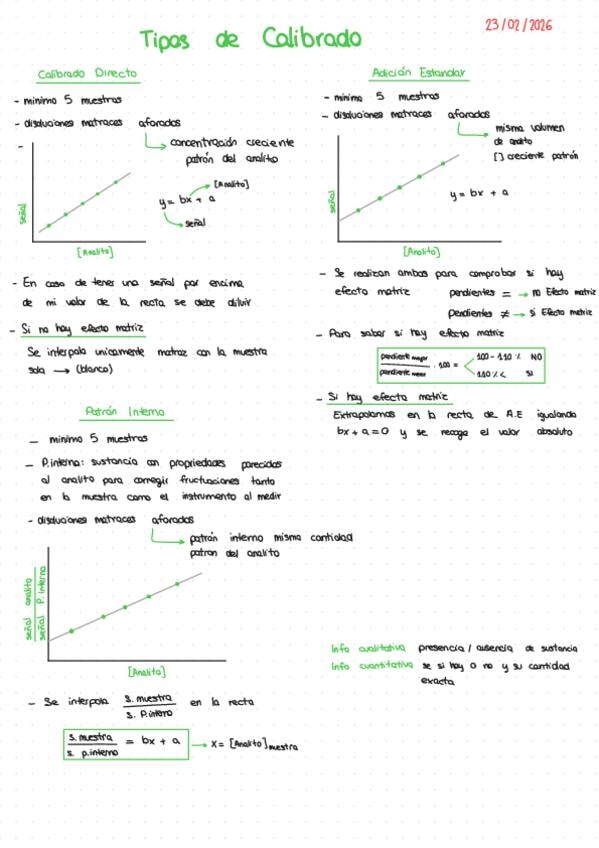 23/02/2026
Tipos de Calibrado
Calibrado Directo
- minimo 5 muestras
- disoluciones matraces aforados
concentración creciente
patrón del analito
-
señal
[Analito]
y = bx + a
[Analito]
señal
- En caso de tener una señal por encima
de mi valor de la recta se debe diluir
- Si no hay efecto matriz
Se interpola unicamente matraz con la muestra
sola → (blanco)
Adición Estandar
- minimo 5 muestras
- disoluciones matraces aforados
mismo volumen
de analito
[ ] creciente patrón
señal
[Analito]
y = bx + a
- Se realizan ambos para comprobar si hay
efecto matriz pendientes = → no Efecto matriz
pendientes ≠ → si Efecto matriz
- Para saber si hay efecto matriz
pendiente mayor / pendiente menor · 100 = 100 - 110 % NO
110 % < SI
- Si hay efecto matriz
Extrapolamos en la recta de A.E igualando
bx + a = 0 y se recoge el valor absoluto
Patrón Interno
- minimo 5 muestras
- P.interno: sustancia con propiedades parecidas
al analito para corregir fructuaciones tanto
en la muestra como el instrumento al medir
- disoluciones matraces aforados
patrón interno misma cantidad
patron del analito
señal analito / señal P. interno
[Analito]
- Se interpola s. muestra / s. P.interno en la recta
s. muestra / s. p.interno = bx + a → X = [Analito] muestra
Info cualitativa presencia / ausencia de sustancia
Info cuantitativa se si hay o no y su cantidad
exacta